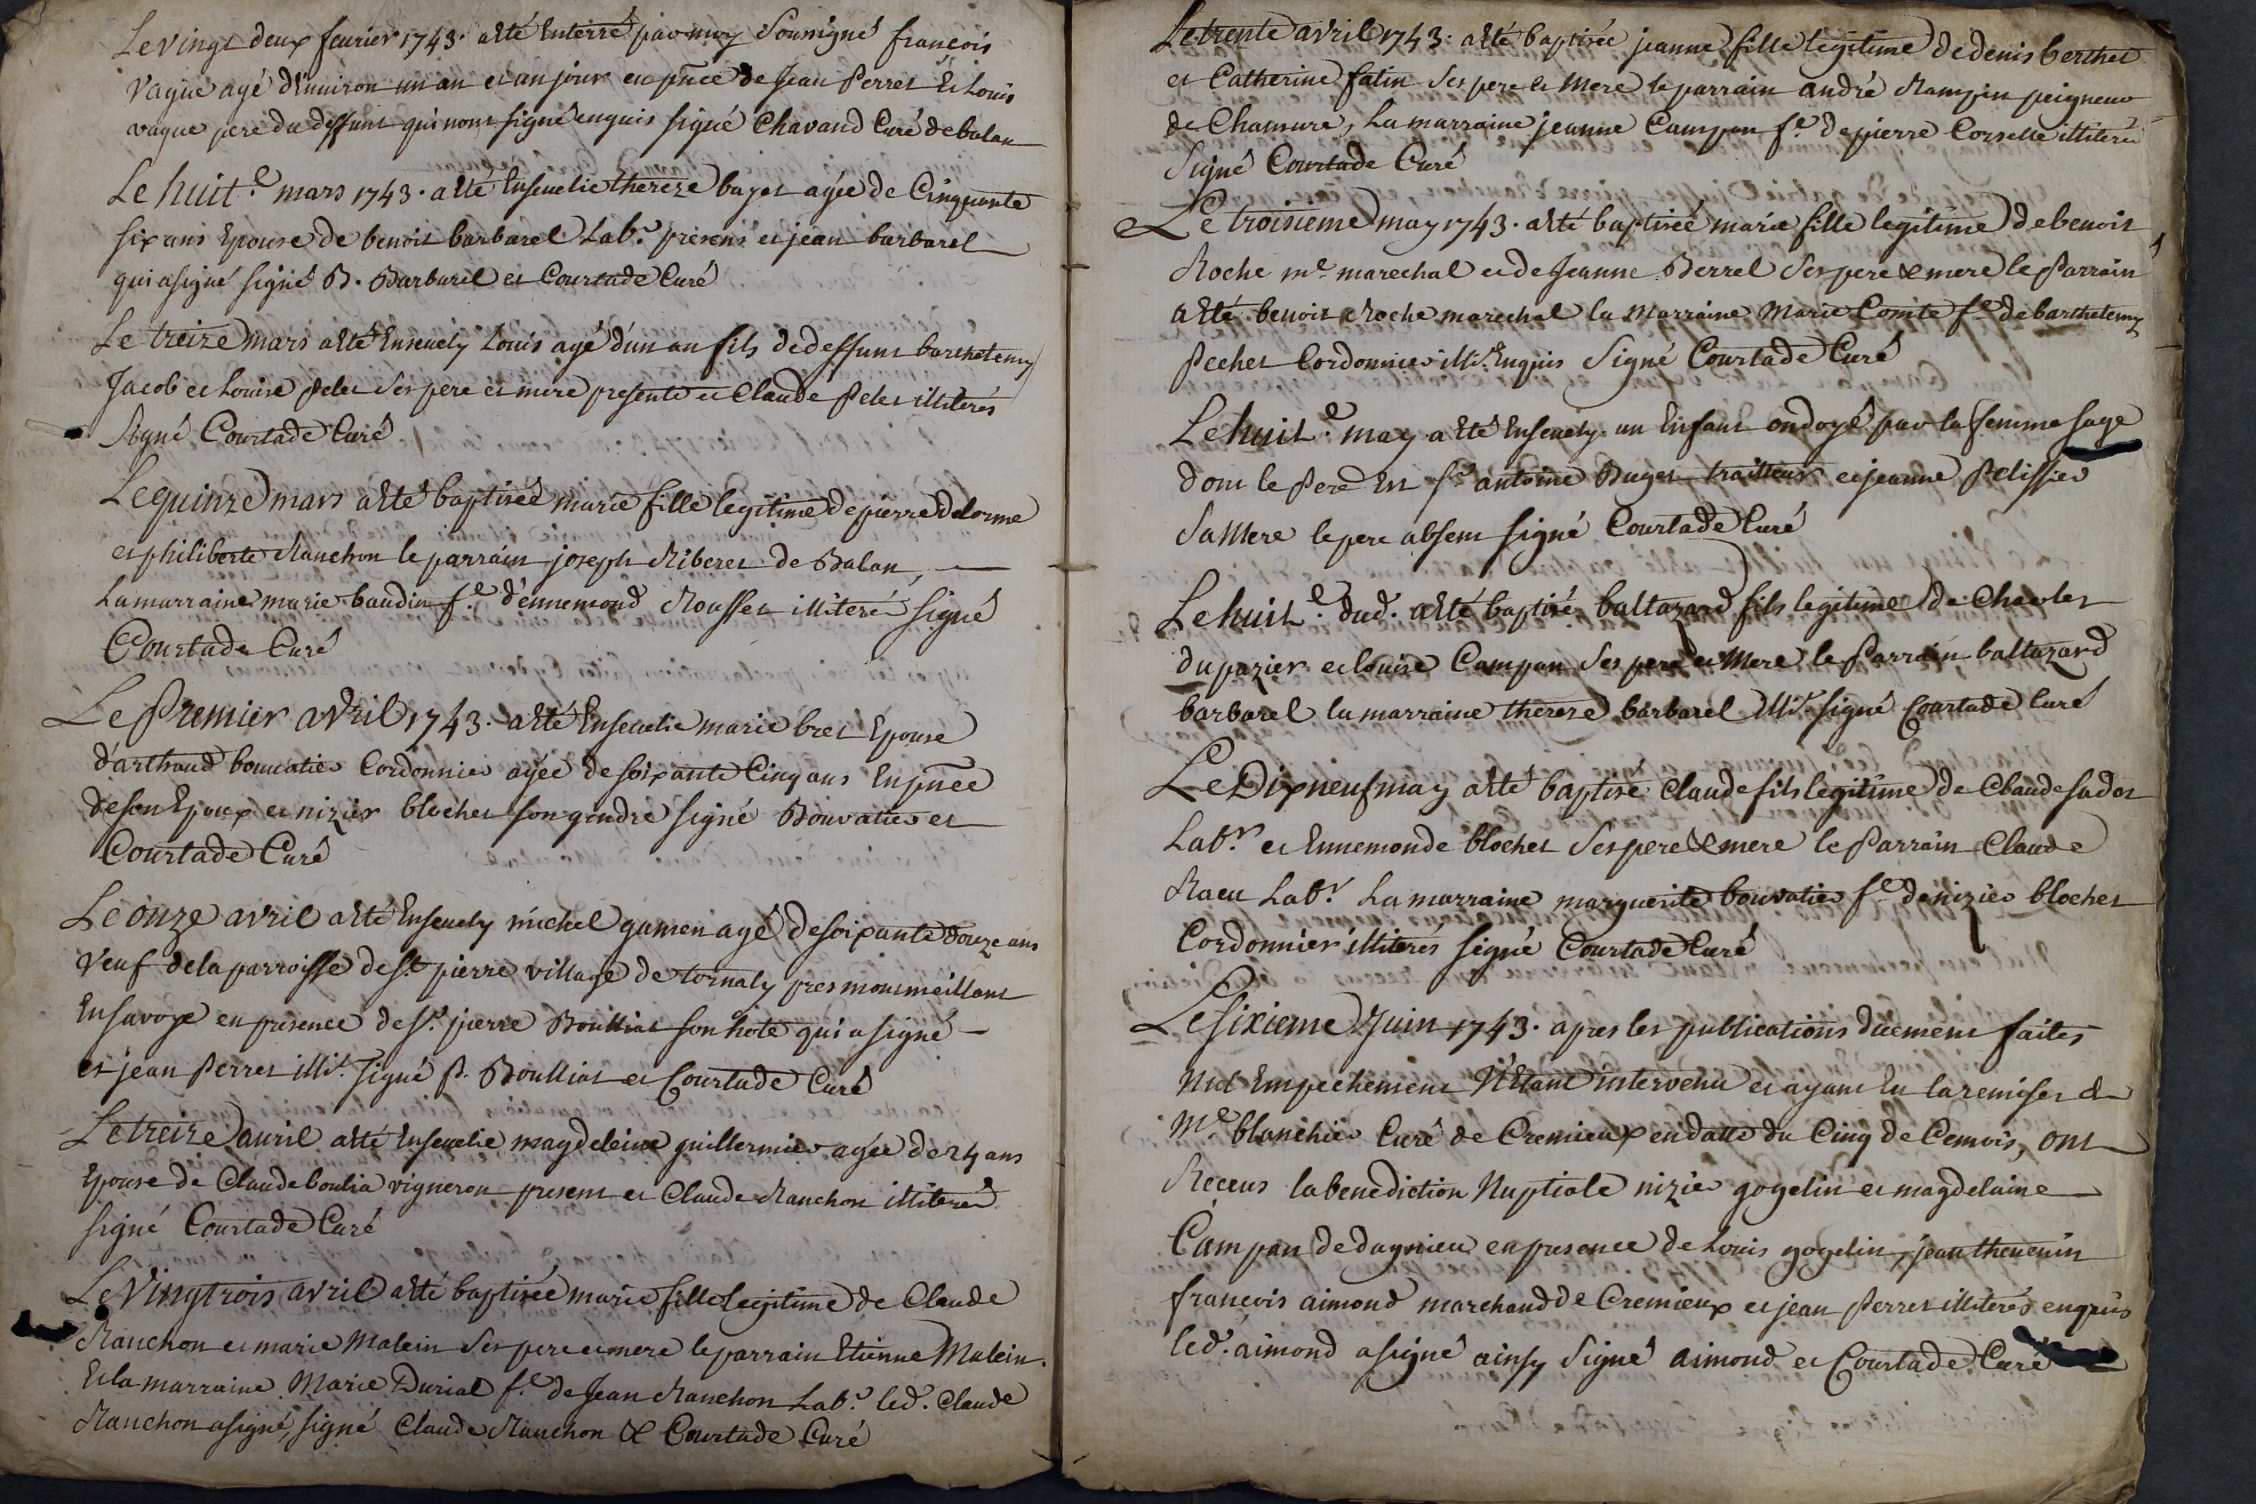 Le vingt deux feurier 1743. a eté Enterré par moy Soussigné francois
vague agé d'Enuiron un an et un jour en pñce de Jean Perret Et Louis
vague pere du deffunt qui n'ont signé enquis signé Chavand Curé de balan
Le huit.e mars 1743. a eté Enseuelie thereze buget agée de Cinquante
six ans Epouse de benoit barbarel Lab.r présent et jean barbarel
qui a signé signé B. Barbaril et Courtade Curé
Le treize mars a eté Enseuely Louis agé d'un an fils de deffunt barthelemy
Jacob et Louise Pelet Ses pere et mere presente et Claude Pelet illiterés
Signé Courtade Curé
Le quinze mars a eté baptiseé marie fille legitime de pierre Delorme
et philiberte Ranchon le parrain joseph Riberet de Balan,
La marraine marie baudin f.e d'ennemond Rousset illiteré signé
Courtade Curé
Le Premier avril 1743. a eté Enseuelie marie bret Epouse
d'arthaud bouvatier Cordonnier agée de soixante Cinq ans En pñce
de son Epoux et nizier blochet son gendre signé Bouvatier et
Courtade Curé
Le onze avril a eté Enseuely michel gamen agé de soixante douze ans
Veuf de la parroisse de S.t pierre village de tornaly pres monmeillant
En savoye en presence de S.r pierre Boulliat son hote qui a signé
et jean Perret illit. signé P. Boulliat et Courtade Curé
Le treize auril a eté Enseuelie magdeleine guillermier agée de 24 ans
Epouse de Claude boulia vigneron present et Claude Ranchon illiterés
signé Courtade Curé
Le Vingtrois avril a eté baptiseé marie fille Legitime de Claude
Ranchon et marie Malein Ses pere et mere le parrain Etienne Malein.
Et la marraine Marie Durial f.e de Jean Ranchon Lab.r led. Claude
Ranchon a signé, signé Claude Ranchon & Courtade Curé
Le trente avril 1743. a eté baptiseé jeanne fille legitime de denis berthet
et Catherine fatin Ses pere et Mere le parrain andré Rampin peigneur
de Chanure, La marraine jeanne Campan f.e de pierre Corselle illiteré
Signé Courtade Curé
Le troisieme may 1743. a eté baptiseé marie fille legitime de benoit
Roche m.e marechal et de Jeanne Berrel Ses pere & mere le Parrain
a eté benoit Roche marechal la Marraine Marie Comte f.e de barthelemy
Pechet Cordonnier illit. Enquis Signé Courtade Curé
Le huit.e may a eté Enseuely un Enfant ondoyé par la femme sage
dont le Pere Est S.r antoine Buget traitteur et jeanne Pelissier
Sa Mere le pere absent signé Courtade Curé
Le huit.e dud. a eté baptisé baltazard fils legitime de Charles
du pazier et louise Campan Ses pere et Mere le Parrain baltazard
barbarel la marraine thereze barbarel illit. signé Courtade Curé
Le Dixneuf may a eté baptisé Claude fils legitime de Claude sadot
Lab.r et Ennemonde blochet Ses pere & mere le Parrain Claude
Racu Lab.r La marraine marguerite bouvatier f.e de nizier blochet
Cordonnier illiterés signé Courtade Curé
Le sixieme Juin 1743. apres les publications duement faites
Nul Empechement N'Etant intervenu et ayant Eu la remise de
M.e blanchier Curé de Cremieux en datte du Cinq de Cemois, ont
Receus la benediction Nuptiale nizier gogelin et magdelaine
Campan de dagnieu en presence de Louis gogelin, jean thevenin
francois aimond marchand de Cremieux et jean Perret illiterés enquis
led. aimond a signé ainsy Signé aimond et Courtade Curé